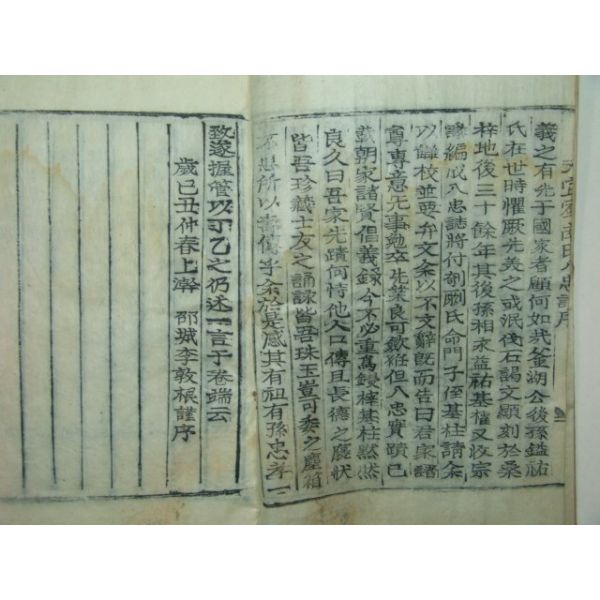 義之有光于國家者顧何如哉釜湖公後孫鎰祐
氏在世時懼厥先美之或泯伐石謁文顯刻於桑
梓地後三十餘年其後孫相永益祐基權又收宗
編成八忠誌將付剞劂氏命門子侄基柱請余
以讎校並要弁文余以不文辭旣而告曰君家諸
專意无事勉卒先業良可歎 但八忠實蹟已
載朝家諸賢倡義錄今不必重爲鋟梓基柱黙然
良久曰吾家先蹟何恃他人口傳且長德之 狀
皆吾珍藏士友之誦詠皆吾珠玉豈可委之塵箱
所以 傳乎余於是感其有祖有孫忠孝一
致遂握管以丁乙之仍述一言于卷端云
歲己丑仲春上澣 邵城李敦根謹序